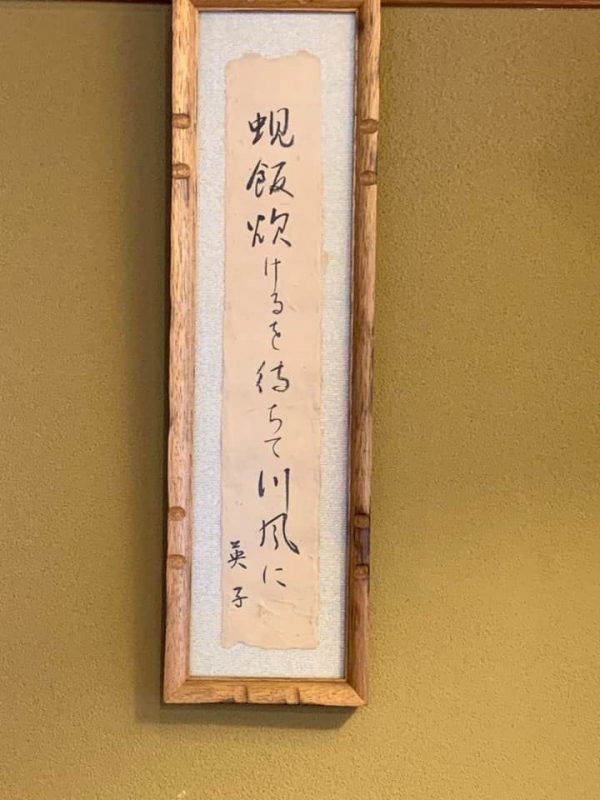 蜆飯炊けるを待ちて川風に
英子